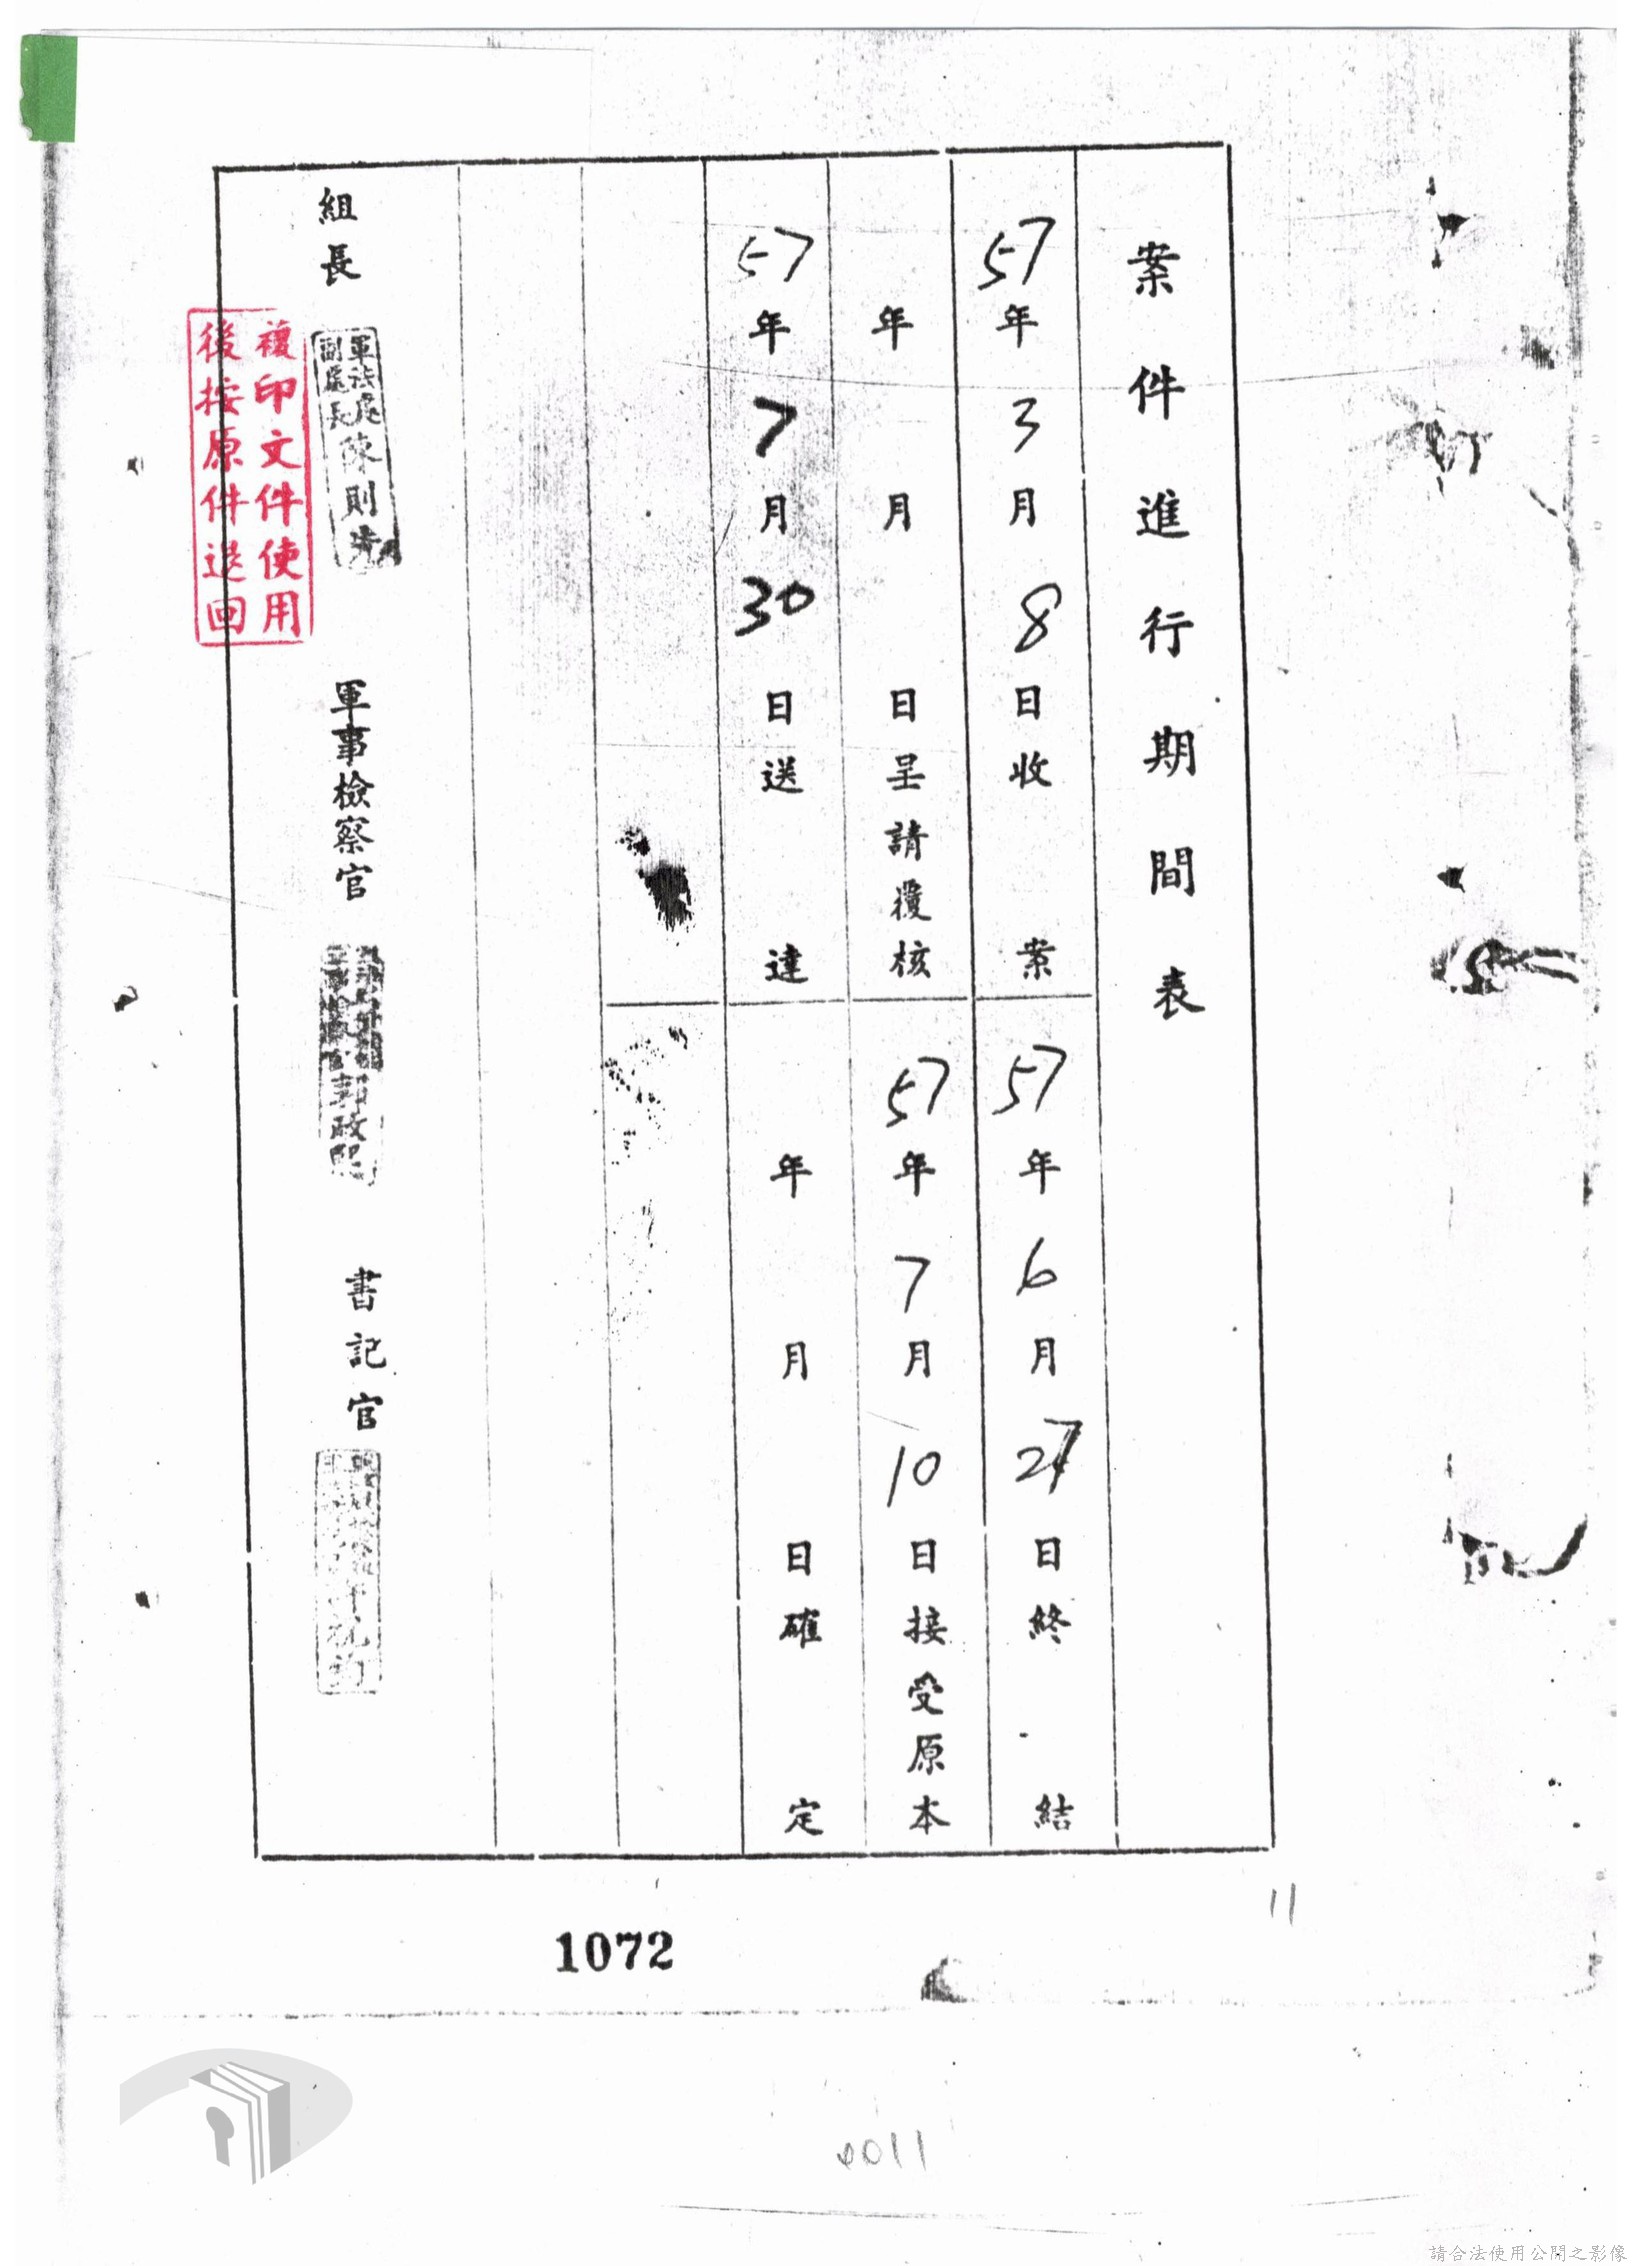 案件進行期間表
57年3月8日收案
57年6月27日終結
年月日呈請覆核
57年7月10日接受原本
57年7月30日送達
年月日確定
組長
軍法處
副處長
陳則
軍事檢察官
政
書記官
複印文件使用
後按原件退回
11
1072
0011
請合法使用公開之影像